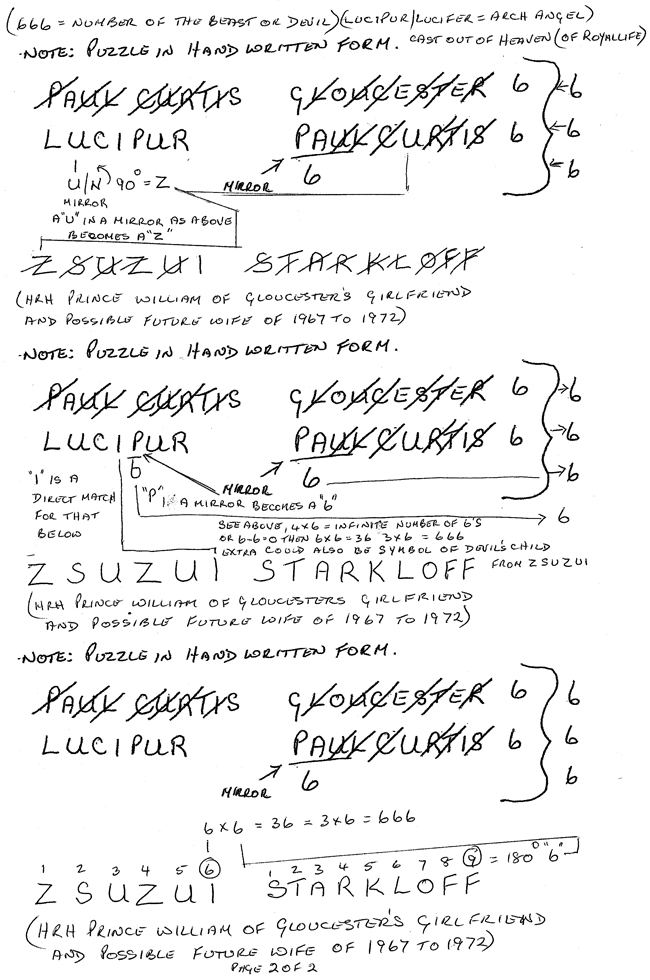 (666 = NUMBER OF THE BEAST OR DEVIL)(LUCIPUR/LUCIFER = ARCH ANGEL)
·NOTE: PUZZLE IN HAND WRITTEN FORM. CAST OUT OF HEAVEN (OF ROYALLIFE)
PAUL CURTIS GLOUCESTER 6 6
LUCIPUR PAUL CURTIS 6 6
U/N 90° = Z MIRROR 6 6
MIRROR
A "U" IN A MIRROR AS ABOVE
BECOMES A "Z"
ZSUZUI STARKLOFF
(HRH PRINCE WILLIAM OF GLOUCESTER'S GIRLFRIEND
AND POSSIBLE FUTURE WIFE OF 1967 TO 1972)
·NOTE: PUZZLE IN HAND WRITTEN FORM.
PAUL CURTIS GLOUCESTER 6 6
LUCIPUR PAUL CURTIS 6 6
6 MIRROR 6 6
"I" IS A
DIRECT MATCH
FOR THAT
BELOW
"P" IN A MIRROR BECOMES A "6"
6
SEE ABOVE, 4x6 = INFINITE NUMBER OF 6'S
OR 6-6=0 THEN 6x6=36 3x6 = 666
EXTRA COULD ALSO BE SYMBOL OF DEVIL'S CHILD
ZSUZUI STARKLOFF FROM ZSUZUI
(HRH PRINCE WILLIAM OF GLOUCESTERS GIRLFRIEND
AND POSSIBLE FUTURE WIFE OF 1967 TO 1972)
·NOTE: PUZZLE IN HAND WRITTEN FORM.
PAUL CURTIS GLOUCESTER 6 6
LUCIPUR PAUL CURTIS 6 6
MIRROR 6 6
6 x 6 = 36 = 3x6 = 666
1 2 3 4 5 6 1 2 3 4 5 6 7 8 9 = 180° "6"
ZSUZUI STARKLOFF
(HRH PRINCE WILLIAM OF GLOUCESTER'S GIRLFRIEND
AND POSSIBLE FUTURE WIFE OF 1967 TO 1972)
PAGE 2 OF 2